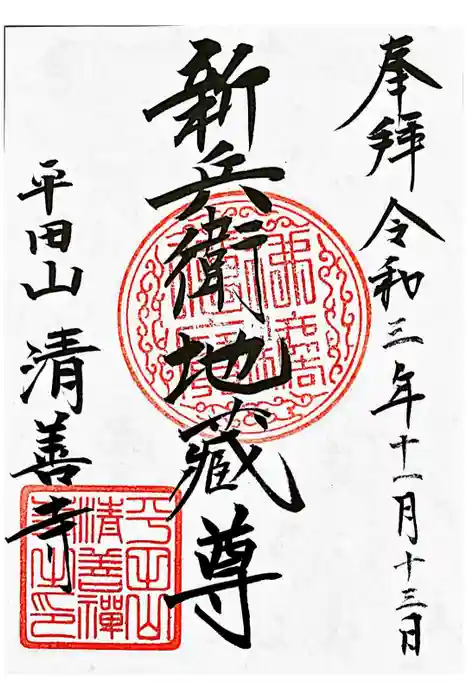 奉拝 令和三年十一月十三日
新兵衛地蔵尊
平田山 清善寺
平田山
清善禪
寺之印